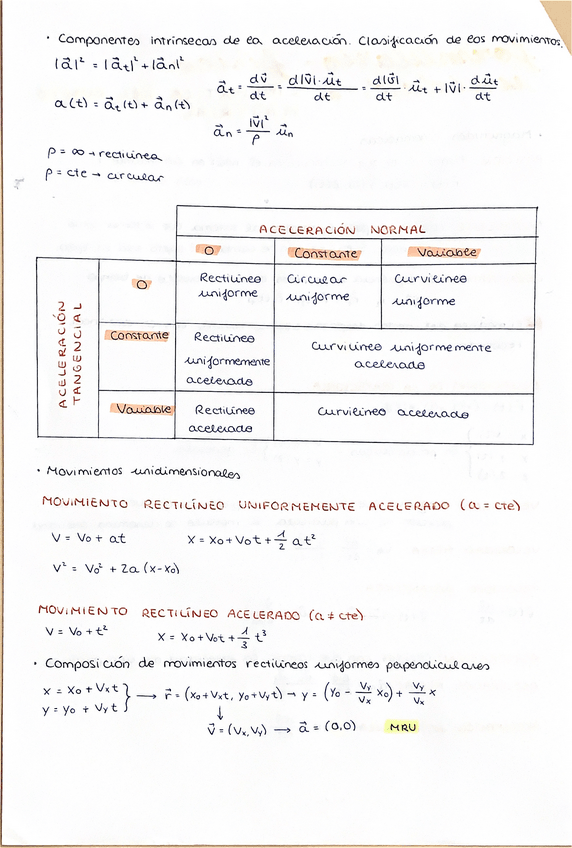 · Componentes intrínsecas de la aceleración. Clasificación de los movimientos.
|a⃗|² = |a⃗t|² + |a⃗n|²
a⃗t = dv⃗/dt = d|v⃗|·u⃗t/dt = d|v⃗|/dt · u⃗t + |v⃗| · du⃗t/dt
a(t) = a⃗t(t) + a⃗n(t)
a⃗n = |v⃗|²/ρ u⃗n
ρ = ∞ → rectilínea
ρ = cte → circular
ACELERACIÓN NORMAL
0 Constante Variable
ACELERACIÓN TANGENCIAL
0 Rectilíneo uniforme Circular uniforme Curvilíneo uniforme
Constante Rectilíneo uniformemente acelerado Curvilíneo uniformemente acelerado
Variable Rectilíneo acelerado Curvilíneo acelerado
· Movimientos unidimensionales
MOVIMIENTO RECTILÍNEO UNIFORMEMENTE ACELERADO (a = cte)
V = V₀ + at X = X₀ + V₀t + 1/2 at²
V² = V₀² + 2a (x-x₀)
MOVIMIENTO RECTILÍNEO ACELERADO (a ≠ cte)
V = V₀ + t² X = X₀ + V₀t + 1/3 t³
· Composición de movimientos rectilíneos uniformes perpendiculares
x = x₀ + Vxt
y = y₀ + Vyt } → r⃗ = (x₀ + Vxt, y₀ + Vyt) → y = (y₀ - Vy/Vx x₀) + Vy/Vx x
↓
v⃗ = (Vx, Vy) → a⃗ = (0,0) MRU